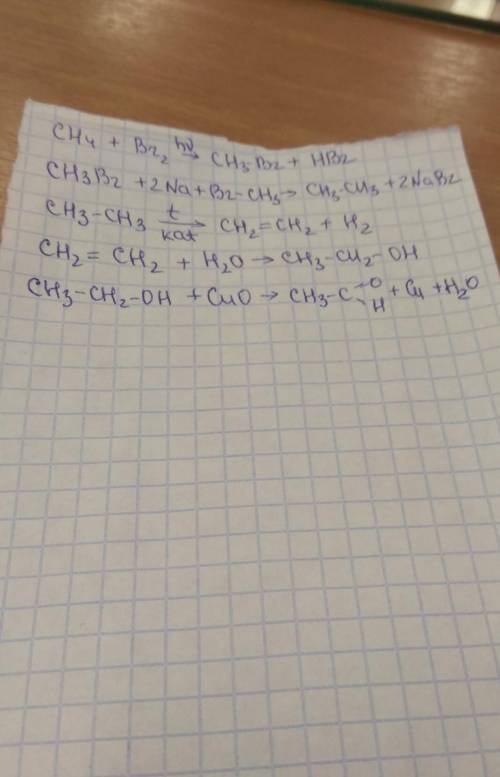 CH4 + Br2 hν→ CH3Br + HBr
CH3Br + 2Na + Br-CH3 → CH3-CH3 + 2NaBr
CH3-CH3 t→kat CH2=CH2 + H2
CH2=CH2 + H2O → CH3-CH2-OH
CH3-CH2-OH + CuO → CH3-C=O-H + Cu + H2O